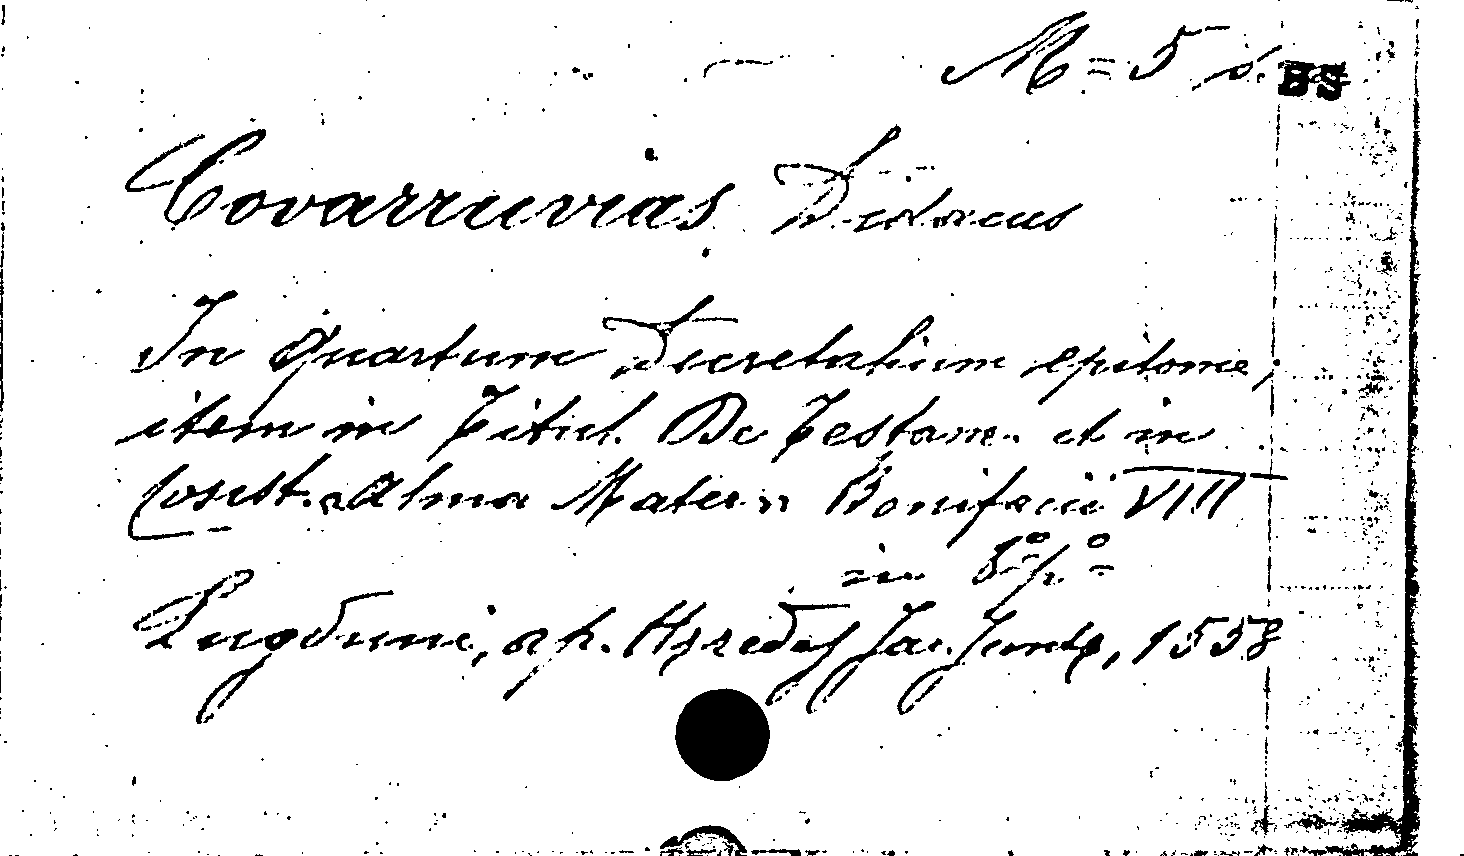 M=5 s. BS
Covarruvias Didacus
In quartum Decretalium epitome;
item in Titul. De Testam. et in
Const. "Alma Mater" Bonifacii VIII
in 8º p.º
Lugduni, ap. Hæredes Jac. Juntę, 1558